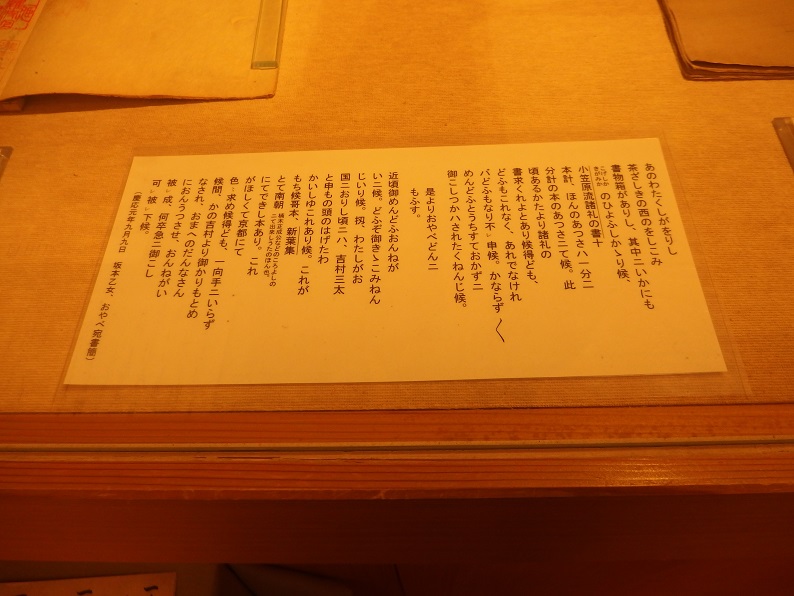 あのわたくしがをりし
茶ざしきの西のをしこみ
書物箱がありし、其中ニいかにも
こげしか
きがみか
のひよふしかゝり候、
小笠原流諸礼の書十
本計、ほんのあつさハ一分二
分計の本のあつさニて候。此
頃あるかたより諸礼の
書求くれよとあり候得ども、
どふもこれなく、あれでなけれ
バどふもなり不レ申候。かならず〱
めんどふとうちすておかずニ
御こしつかハされたくねんじ候。
是よりおやべどんニ
もふす。
近頃御めんどふおんねが
い二候。どふぞ御きゝこみねん
じいり候。扨、わたしがお
国ニおりし頃ニハ、吉村三太
と申もの頭のはげたわ
かいしゆこれあり候。これが
もち候哥本、新葉集
とて南朝
楠木正成公などのころよしの
ニて出来しうたのほん也。
にてできし本あり。これ
がほしくて京都にて
色〻求め候得ども、一向手ニいらず
候間、かの吉村より御かりもとめ
なされ、おまへのだんなさん
におんうつさせ、おんねがい
被レ成、何卒急ニ御こし
可レ被レ下候。
(慶応元年九月九日 坂本乙女、おやべ宛書簡)